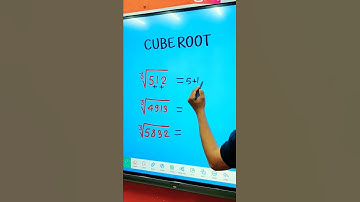 CUBE ROOT
∛512 = 5+1
∛4913 =
∛5832 =